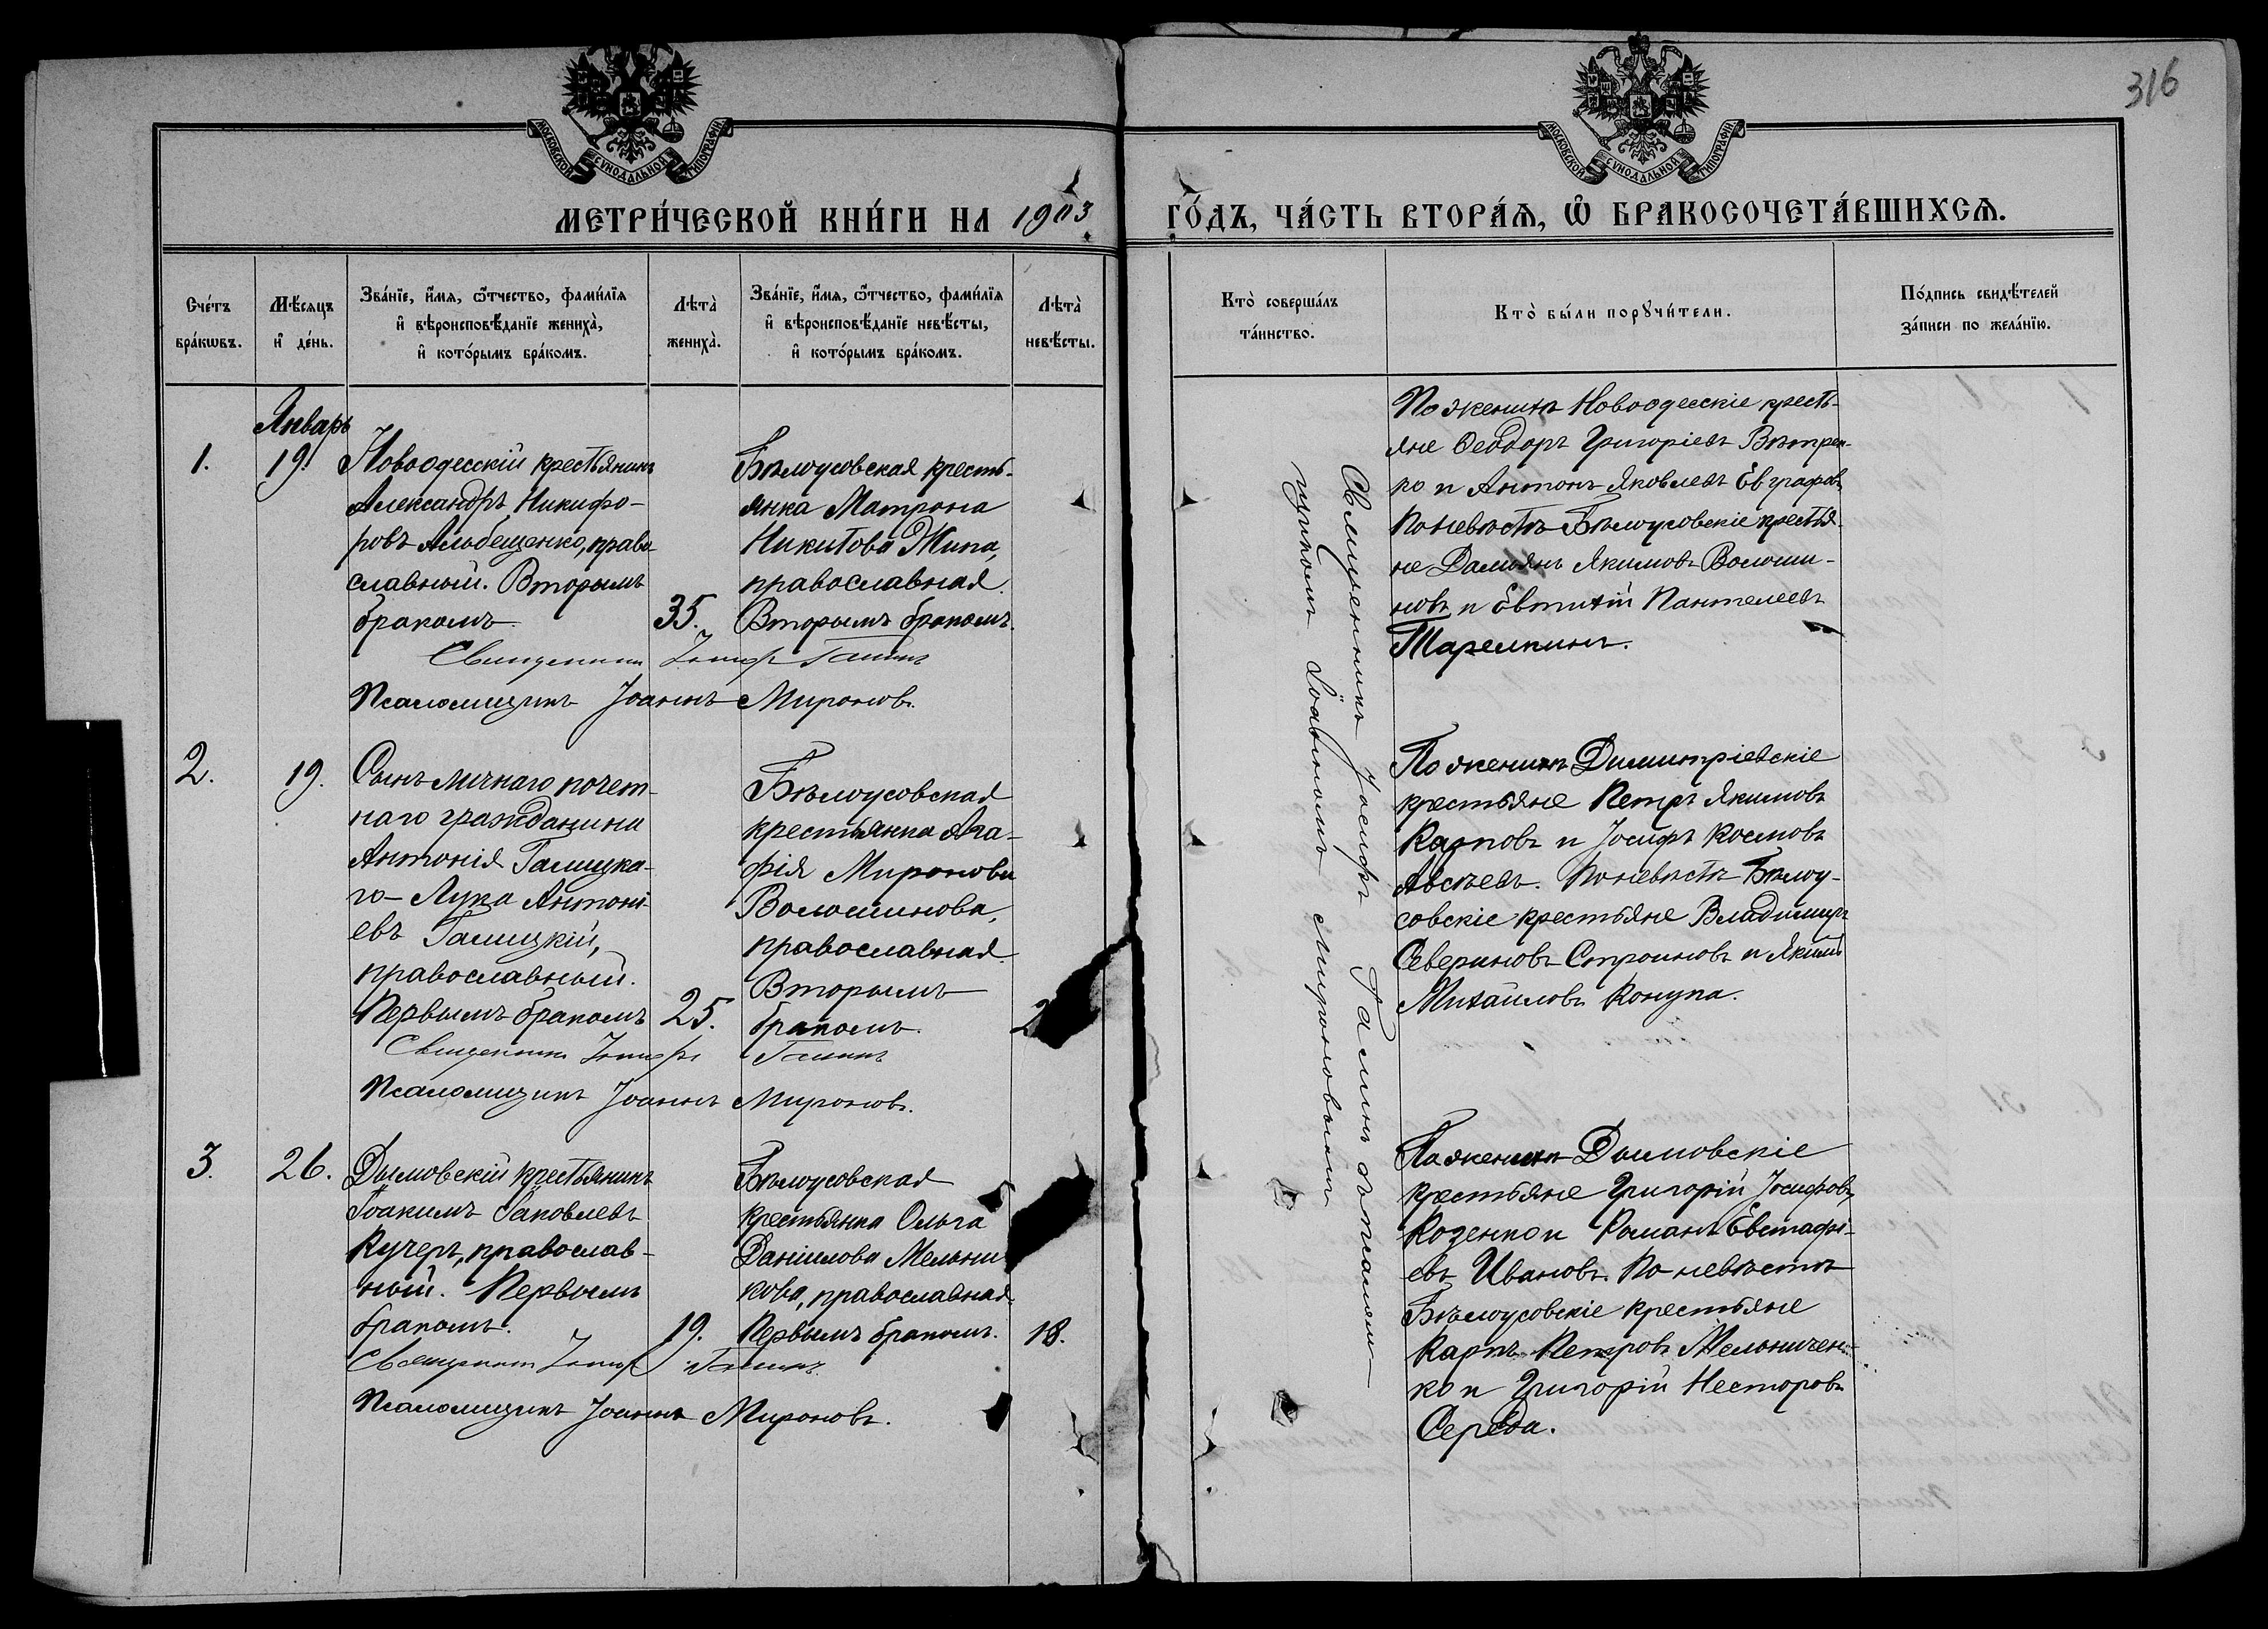 316
МОСКОВСКОЙ СѴНОДАЛЬНОЙ ТИПОГРАФІИ
МОСКОВСКОЙ СѴНОДАЛЬНОЙ ТИПОГРАФІИ
МЕТРИ́ЧЕСКОЙ КНИ́ГИ НА 1903 ГО́ДЪ, ЧА́СТЬ ВТОРА́Ѧ, Ѽ БРАКОСОЧЕТА́ВШИХСѦ.
Сче́тъ
бра́кѡвъ.
Мѣ́сѧцъ
и҆ де́нь.
Зва́нїе, и҆́мѧ, ѻ҆́тчество, фамилїѧ
и҆ вѣроисповѣ́данїе жениха̀,
и҆ кото́рымъ бра́комъ.
Лѣта̀
жениха̀.
Зва́нїе, и҆́мѧ, ѻ҆́тчество, фамилїѧ
и҆ вѣроисповѣ́данїе невѣ́сты,
и҆ кото́рымъ бра́комъ.
Лѣта̀
невѣ́сты.
Кто̀ соверша́лъ
та́инство.
Кто̀ бы́ли порꙋчи́тели.
По́дпись свидѣ́телей
за́писи по жела́нїю.
Январь
1.
19.
Новоодесскій крестьянинъ
Александръ Никифо-
ровъ Альбещенко, право
славный. Вторымъ
бракомъ
35.
Бѣлоусовская кресть-
янка Матрона
Никитова Жипа,
православная.
Вторымъ бракомъ.
Священникъ Іосифъ Галинъ
Псаломщикъ Іоаннъ Мироновъ.
По женихѣ Новоодесскіе кресть-
яне Ѳеодоръ Григоріевъ Вѣтрен-
ко и Антонъ Яковлевъ Евграфовъ
По невѣстѣ Бѣлоусовскіе крестья-
не Дамьянъ Якимовъ Волоши-
новъ и Евтихій Пантелеевъ
Тарелкинъ.
2.
19.
Сынъ личнаго почет-
наго гражданина
Антонія Галицка-
го - Лука Антоні-
евъ Галицкій,
православный.
Первымъ бракомъ
25.
Бѣлоусовская
крестьянка Ага-
фія Миронова
Волошинова,
православная.
Вторымъ
бракомъ.
2
Священникъ Іосифъ Галинъ
Псаломщикъ Іоаннъ Мироновъ.
По женихѣ Димитріевскіе
крестьяне Петръ Якимовъ
Карповъ и Іосифъ Космовъ
Авсѣевъ. По невѣстѣ Бѣлоу-
совскіе крестьяне Владимиръ
Севериновъ Строиновъ и Якимъ
Михайловъ Конупа.
3.
26.
Дымовскій крестьянинъ
Іоакимъ Іаковлевъ
Кучеръ, православ-
ный. Первымъ
бракомъ.
19.
Бѣлоусовская
крестьянка Ольга
Даніилова Мельни
кова, православная.
Первымъ бракомъ.
18.
Священникъ Іосифъ Галинъ
Псаломщикъ Іоаннъ Мироновъ.
По женихѣ Дымовскіе
крестьяне Григорій Іосифовъ
Козенко и Романъ Евстафі-
евъ Ивановъ. По невѣстѣ
Бѣлоусовскіе крестьяне
Карпъ Петровъ Мельничен-
ко и Григорій Несторовъ
Середа.
Священникъ Іосифъ Галинъ съ псалом-
щикомъ Іоанномъ Мироновымъ